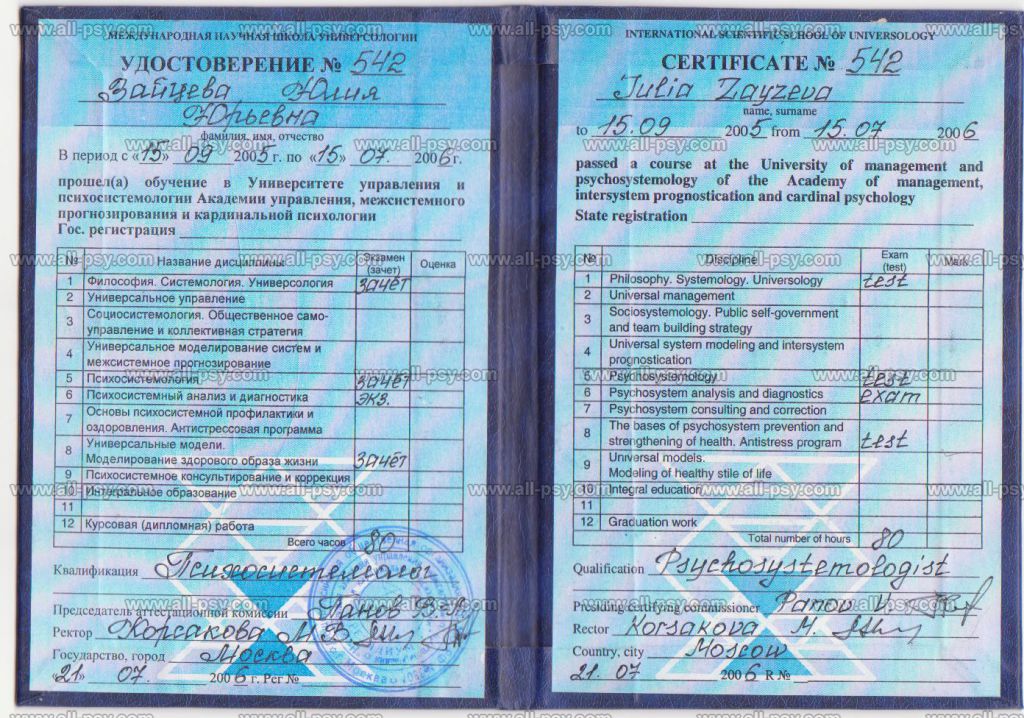 МЕЖДУНАРОДНАЯ НАУЧНАЯ ШКОЛА УНИВЕРСОЛОГИИ
УДОСТОВЕРЕНИЕ № 542
Зайцева Юлия
Юрьевна
фамилия, имя, отчество
В период с «15» 09 2005 г. по «15» 07. 2006 г.
прошел(а) обучение в Университете управления и
психосистемологии Академии управления, межсистемного
прогнозирования и кардинальной психологии
Гос. регистрация
№ Название дисциплины Экзамен (зачет) Оценка
1 Философия. Системология. Универсология зачёт
2 Универсальное управление
3 Социосистемология. Общественное само-
управление и коллективная стратегия
4 Универсальное моделирование систем и
межсистемное прогнозирование
5 Психосистемология зачёт
6 Психосистемный анализ и диагностика экз.
7 Основы психосистемной профилактики и
оздоровления. Антистрессовая программа
8 Универсальные модели.
Моделирование здорового образа жизни зачёт
9 Психосистемное консультирование и коррекция
10 Интегральное образование
11
12 Курсовая (дипломная) работа
Всего часов 80
Квалификация Психосистемолог
Председатель аттестационной комиссии Панов В.
Ректор Корсакова М.В.
Государство, город Москва
«21» 07. 2006 г. Рег №
INTERNATIONAL SCIENTIFIC SCHOOL OF UNIVERSOLOGY
CERTIFICATE № 542
Julia Zayzeva
name, surname
to 15.09 2005 from 15.07 2006
passed a course at the University of management and
psychosystemology of the Academy of management,
intersystem prognostication and cardinal psychology
State registration
№ Discipline Exam (test) Mark
1 Philosophy. Systemology. Universology test
2 Universal management
3 Sociosystemology. Public self-government
and team building strategy
4 Universal system modeling and intersystem
prognostication
5 Psychosystemology test
6 Psychosystem analysis and diagnostics exam
7 Psychosystem consulting and correction
8 The bases of psychosystem prevention and
strengthening of health. Antistress program test
9 Universal models.
Modeling of healthy stile of life
10 Integral education
11
12 Graduation work
Total number of hours 80
Qualification Psychosystemologist
Presiding certifying commissioner Panov V.
Rector Korsakova M.
Country, city Moscow
21.07 2006 R №
www.all-psy.com